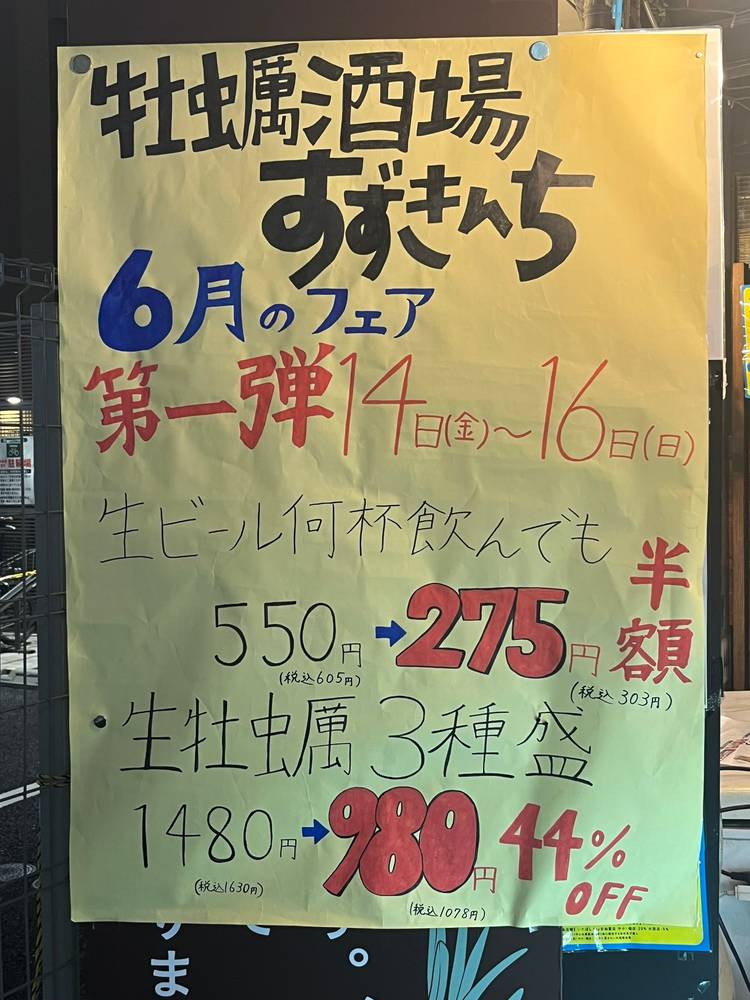 牡蠣酒場
すずきんち
6月のフェア
第一弾14日(金)〜16日(日)
生ビール何杯飲んでも
半額
550円→275円
(税込605円)
(税込303円)
・生牡蠣3種盛
1480円→980円 44%OFF
(税込1630円)
(税込1078円)